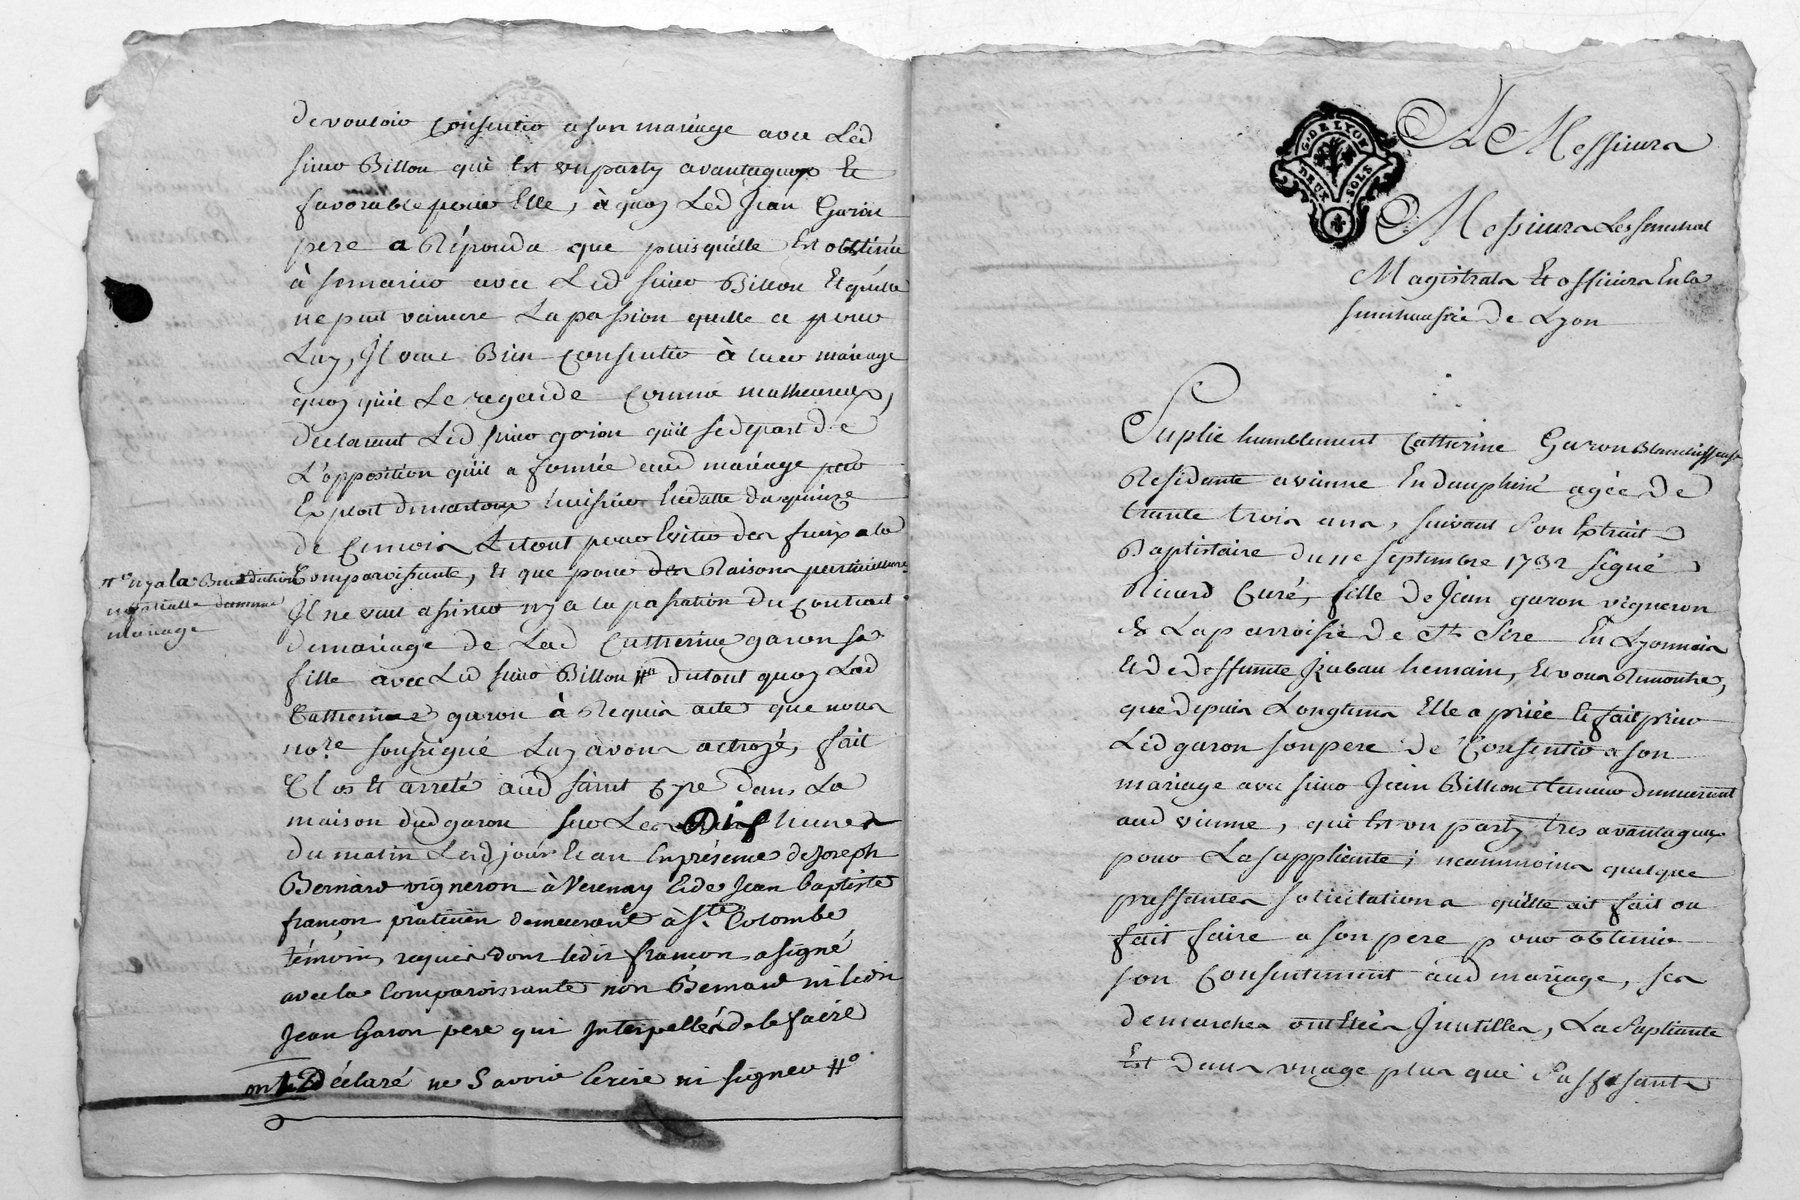 de vouloir Consentir a son mariage avec Led
sieur Billon qui Est un party avantageux Et
favorable pour Elle, à quoy Led Jean Garon
pere a Répondu que puisquélle Est obstinée
à se marier avec Led sieur Billon Et quélle
ne peut vaincre La passion quélle a pour
Luy, Il veut Bien Consentir à leur mariage
quoy quíl Le regarde Comme malheureux,
declarant Led sieur garon quíl se depart de
L'opposition quíl a formée aud mariage par
Exploit de martoux huissier En datte du quinze
de Ce mois Le tout pour Eviter des fraix a la
Comparoissante, Et que pour des Raisons particulieres
Il ne veut assister ny a la passation du Contrat
de mariage de Lad Catherine garon sa
fille avec Led sieur Billon #a dutout quoy Lad
Catherine garon à Requis acte que nous
nore soussigné Luy avons actroyé, fait
Clos Et arreté aud saint Cyre dans La
maison dud garon sur Les Dix heures
du matin Lesd jour Et an En présence de Joseph
Bernard vigneron à Verenay Et de Jean baptiste
françon praticien demeurant à Ste Colombe
témoins requis dont ledit françon a signé
avec la Comparoissante non Bernard ni ledit
Jean Garon pere qui Interpellés de le faire
ont Déclaré ne Savoir Ecrire ni signer #o
#o ny a la Benediction
nuptialle dumême
mariage
G. DE LYON
DEUX SOLS
A Messieurs
Messieurs Les senechal
Magistrats Et officiers En la
senechaussée de Lyon
Suplie humblement Catherine Garon Blanchisseuse
Residante a vienne En dauphiné agée de
trente trois ans, suivant son Extrait
Baptistaire du 11e septembre 1732 signé
Ricard Curé, fille de Jean garon vigneron
de La parroisse de St Sire En Lyonnois
Et de deffunte Izabau hemain, Et vous Remontre,
que depuis Longtems Elle a priée Et fait prier
Led garon son pere de Consentir a son
mariage avec sieur Jean Billion demeurant
aud vienne, qui Est un party tres avantageux
pour La suppliante; neanmoins quelque
pressantes solicitations quélle ait fait ou
fait faire a son pere pour obtenir
son Consentement aud mariage, ses
demarches ont Etées Inutilles, La Supliante
Est dans un age plus que Suffisante